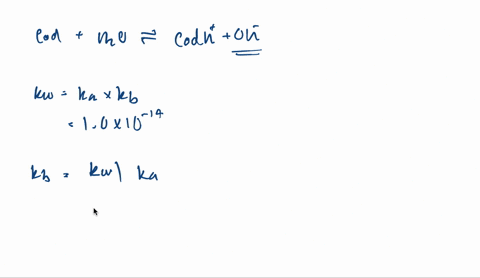 Cod + H2O ⇌ CodH⁺ + OH⁻
kw = ka × kb
= 1.0 × 10⁻¹⁴
kb = kw \ ka